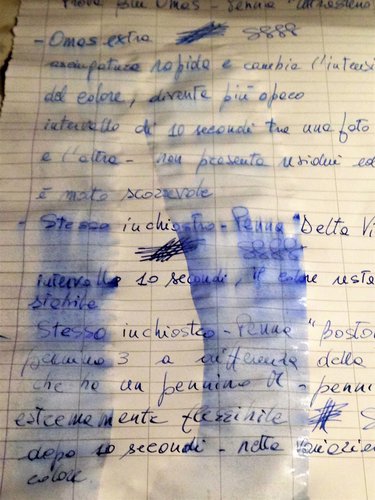 Prova con Omas - Penna "
- Omas extra 8888
asciugatura rapida e cambia l'intensi
del colore, diventa più opaco
intervallo di 10 secondi tra una foto
e l'altra - non presenta residui ed
è molto scorrevole
- Stesso inchiostro - Penna Delta Vi
8888
intervallo 10 secondi, il colore resta
stabile
- Stesso inchiostro - Penna "Bosto
pennino 3 a differenza della
che ha un pennino M - penni
estremamente flessibile
dopo 10 secondi - netta variazion
colore.